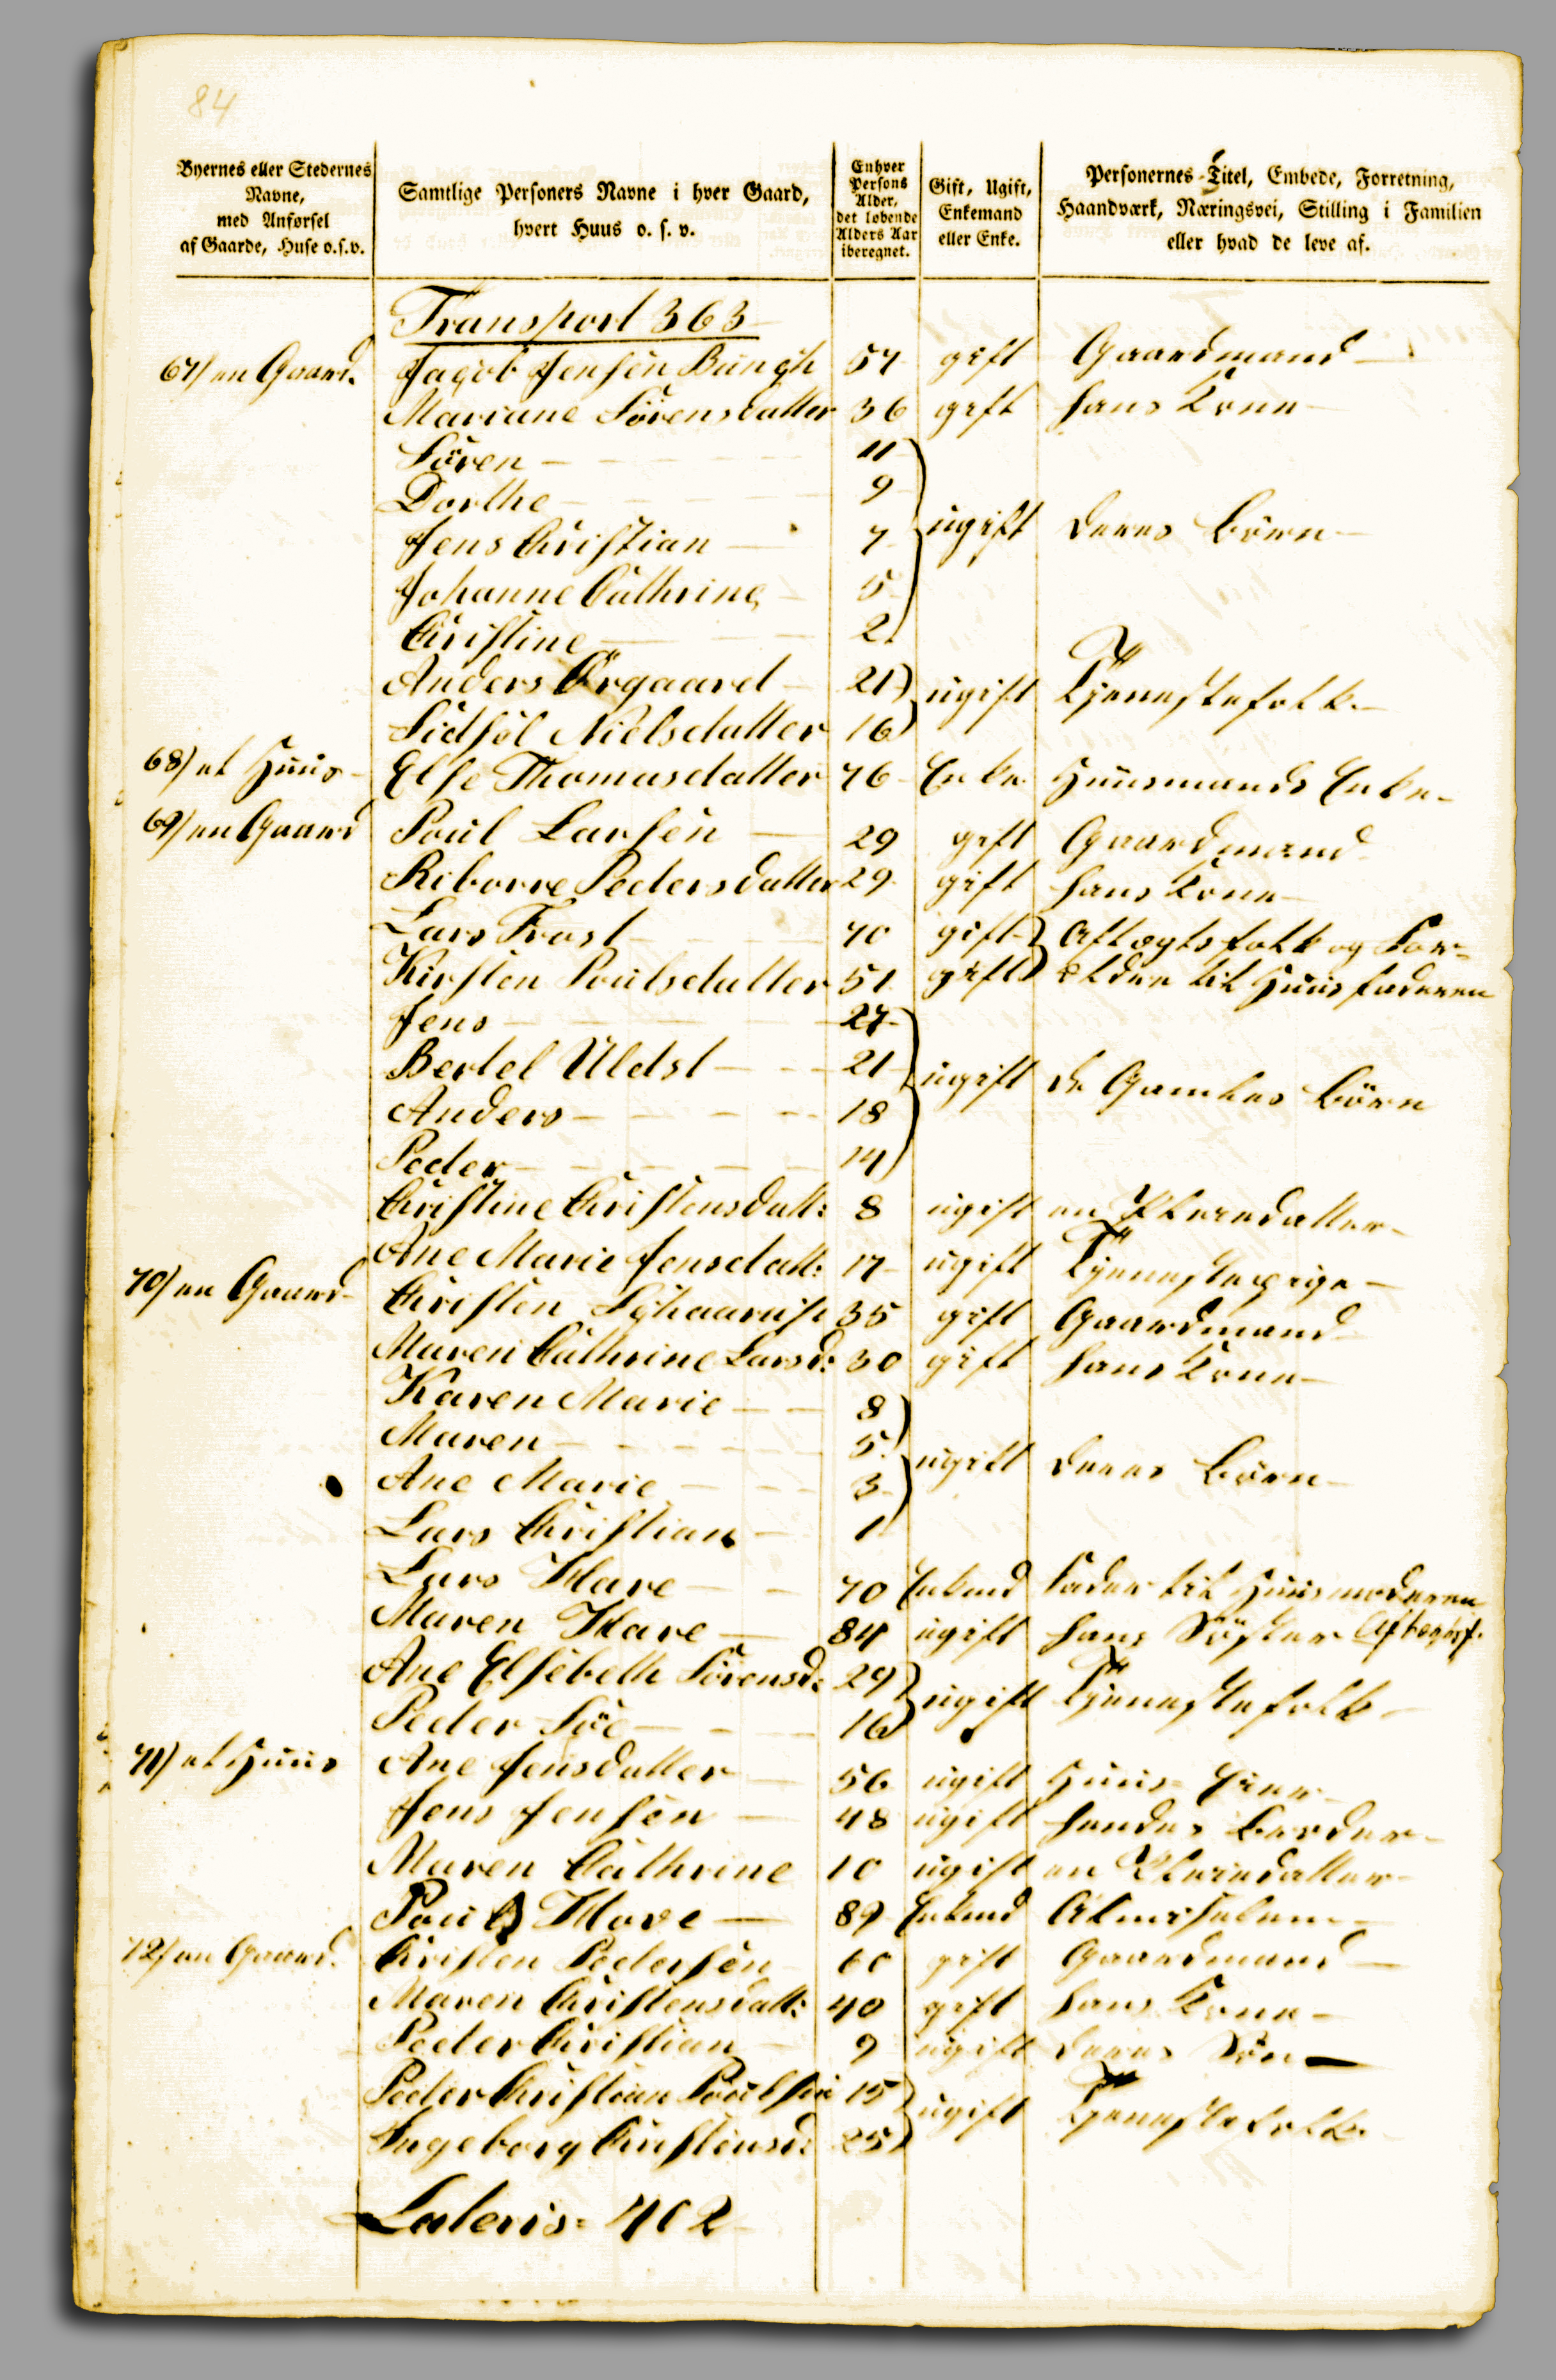 84
Byernes eller Stedernes Navne, med Anførsel af Gaarde, Huse o.s.v.
Samtlige Personers Navne i hver Gaard, hvert Huus o. s. v.
Enhver Persons Alder, det løbende Alders Aar iberegnet.
Gift, Ugift, Enkemand eller Enke.
Personernes Titel, Embede, Forretning, Haandværk, Næringsvei, Stilling i Familien eller hvad de leve af.
Transport 363
67) en Gaard. Jacob Jensen Bungh 57 gift Gaardmand
Mariane Sörensdatter 36 gift hans Kone
Sören 11
Dorthe 9
Jens Christian 7 ugift deres Börn
Johanne Cathrine 5
Christine 2
Anders Örgaard 21 ugift Tjenestefolk
Sidsöl Nielsdatter 16
68) et Huus Else Thomasdatter 76 Enke Huusmands Enke
69) en Gaard Poul Larsen 29 gift Gaardmand
Riborre Pedersdatter 29 gift hans Kone
Lars Trast 70 gift Aftægtsfolk og For-
Kirsten Poulsdatter 51 gift ældre til Huusfaderen
Jens 27
Bertel Uldst 21 ugift de Gamles Börn
Anders 18
Peder 14
Christine Christensdatt: 8 ugift en Pleiedatter
Ane Marie Jensdatt: 17 ugift Tjenestepige
70) en Gaard Christen 35 gift Gaardmand
Maren Cathrine Larsd: 30 gift hans Kone
Karen Marie 8
Maren 5 ugift deres Börn
Ane Marie 3
Lars Christian 1
Lars Klare 70 Enkmd Fader til Huusmoderen
Maren Klare 84 ugift hans Söster
Ane Elsebeth Sörensd: 29 ugift Tjenestefolk
Peder Söe 16
71) et Huus Ane Jensdatter 56 ugift Huus-Eier
Jens Jensen 48 ugift hendes Broder
Maren Cathrine 10 ugift en Pleiedatter
Poul 89 Enkmd Almisselem
72) en Gaard. Christen Pedersen 60 gift Gaardmand
Maren Christensdatt: 40 gift hans Kone
Peder Christian 9 ugift deres Sön
Peder Christian Poulsen 15 ugift Tjenestefolk
Ingeborg Christensd: 25
Lateris= 402